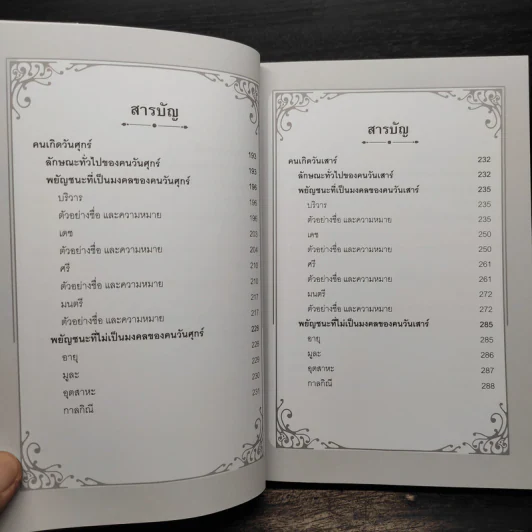 สารบัญ
คนเกิดวันศุกร์ 193
ลักษณะทั่วไปของคนวันศุกร์ 193
พยัญชนะที่เป็นมงคลของคนวันศุกร์ 196
บริวาร 196
ตัวอย่างชื่อ และความหมาย 196
เดช 203
ตัวอย่างชื่อ และความหมาย 204
ศรี 210
ตัวอย่างชื่อ และความหมาย 210
มนตรี 217
ตัวอย่างชื่อ และความหมาย 217
พยัญชนะที่ไม่เป็นมงคลของคนวันศุกร์ 228
อายุ
มูละ
อุตสาหะ 230
กาลกิณี 231
สารบัญ
คนเกิดวันเสาร์ 232
ลักษณะทั่วไปของคนวันเสาร์ 232
พยัญชนะที่เป็นมงคลของคนวันเสาร์ 235
บริวาร 235
ตัวอย่างชื่อ และความหมาย 235
เดช 250
ตัวอย่างชื่อ และความหมาย 250
ศรี 261
ตัวอย่างชื่อ และความหมาย 261
มนตรี 272
ตัวอย่างชื่อ และความหมาย 272
พยัญชนะที่ไม่เป็นมงคลของคนวันเสาร์ 285
อายุ 285
มูละ 286
อุตสาหะ 287
กาลกิณี 288